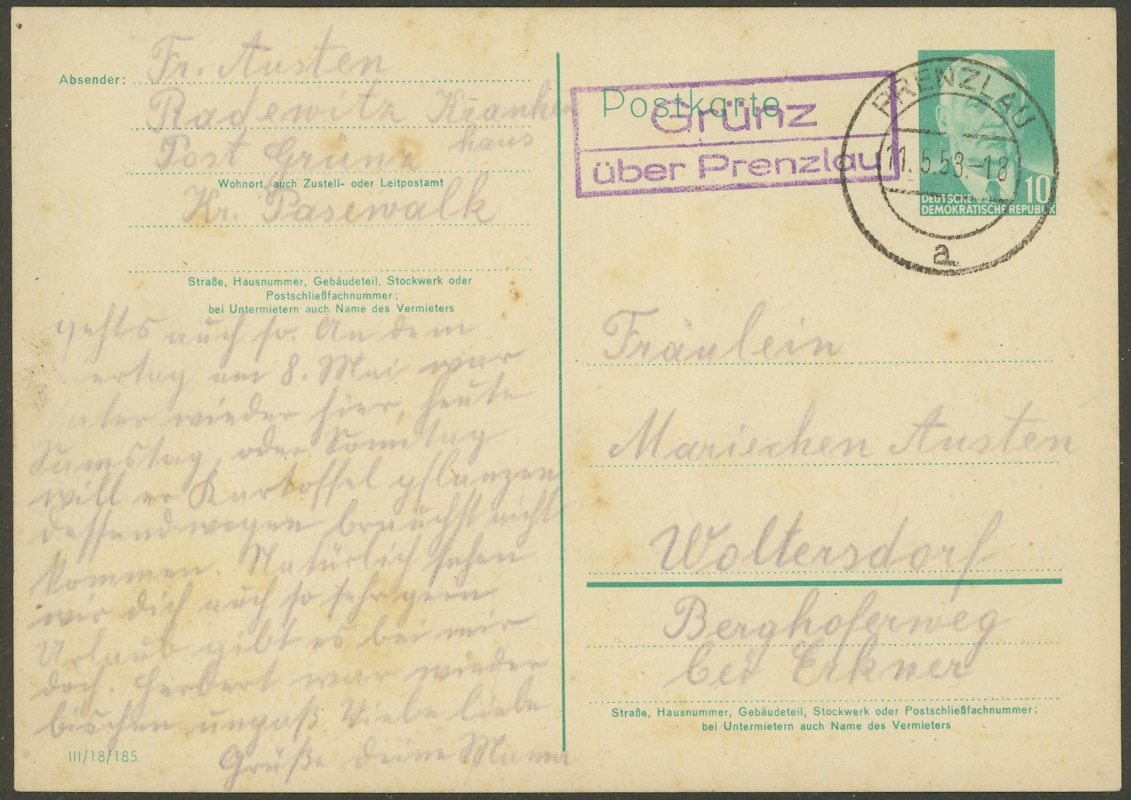 Absender: Fr. Austen
Radewitz Kranken
haus
Post Grünz
Wohnort, auch Zustell- oder Leitpostamt
Kr. Pasewalk
Straße, Hausnummer, Gebäudeteil, Stockwerk oder
Postschließfachnummer;
bei Untermietern auch Name des Vermieters
gehts auch so. An dem
ertag am 8. Mai war
ater wieder hier, heute
Samstag, oder Sonntag
will er Kartoffel pflanzen
dessendwegen brauchst nicht
kommen. Natürlich sehen
wir dich auch so sehr gern
Urlaub gibt es bei mir
doch. Herbert war wieder
bischen unpaß Viele liebe
Grüße deine Mama
III/18/185
Postkarte
Grünz
über Prenzlau
PRENZLAU
11.5.53.-18
a
10
DEUTSCHE
DEMOKRATISCHE REPUBLIK
Fräulein
Mariechen Austen
Woltersdorf
Berghoferweg
bei Erkner
Straße, Hausnummer, Gebäudeteil, Stockwerk oder Postschließfachnummer;
bei Untermietern auch Name des Vermieters